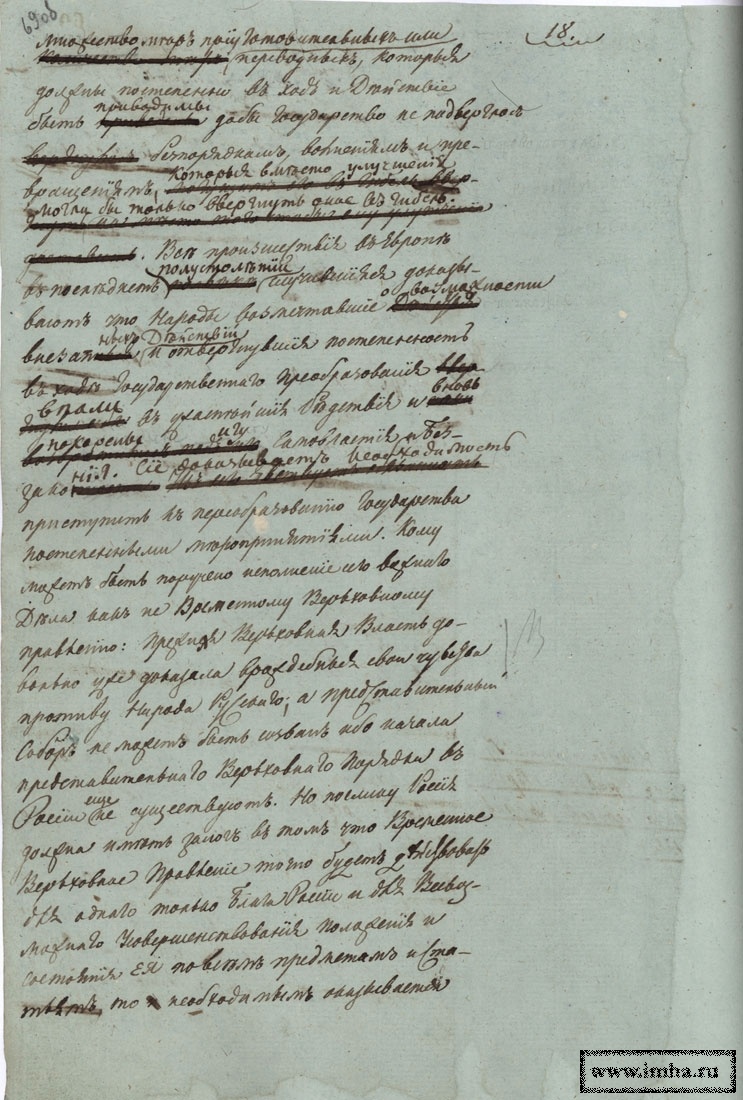 690б
18.
множество мѣръ приуготовительныхъ или
переводныхъ, которыя
должны постепенно въ ходъ и Дѣйствіе
приводимы
быть дабы Государство не подверглось
безпорядкамъ, волненіямъ и пре-
которыя вмѣсто улучшенія
вращеніямъ,
могли бы только ввергнуть оное въ гибель.
Всѣ произшествія въ Европѣ
полустолѣтіи
въ послѣднемъ случившіяся доказы-
возможности
вают что Народы возмечтавшіе о
ныхъ Дѣйствій
внезап и отвергнувшія постепенность
въ ходѣ Государственнаго Преобразованія
впали вновь
въ ужаснѣйшія бѣдствія и
покорены игу
Самовластія и Без-
нія. Сіе доказываетъ необходимость
зако
приступить къ переобразованію Государства
постепенными мѣропріятіями. Кому
можетъ быть поручено исполненіе сего важнаго
Дѣла какъ не Временному Верьховному
правленію: прежняя Верьховная Власть до-
вольно уже доказала враждебныя свои чувства
противу Народа Русскаго; а представительный
Соборъ не можетъ быть созванъ ибо начала
представительнаго Верьховнаго Порядка въ
еще
Россіи не существуютъ. Но поелику Россія
должна имѣть залогъ въ томъ что Временное
Верьховное Правленіе точно будетъ дѣйствовать
для однаго только Блага Россіи и для Всевоз-
можнаго Усовершенствованія положенія и
состоянія Ея по всѣмъ предметамъ и Ста-
тьямъ, то необходимымъ оказывается
www.imha.ru